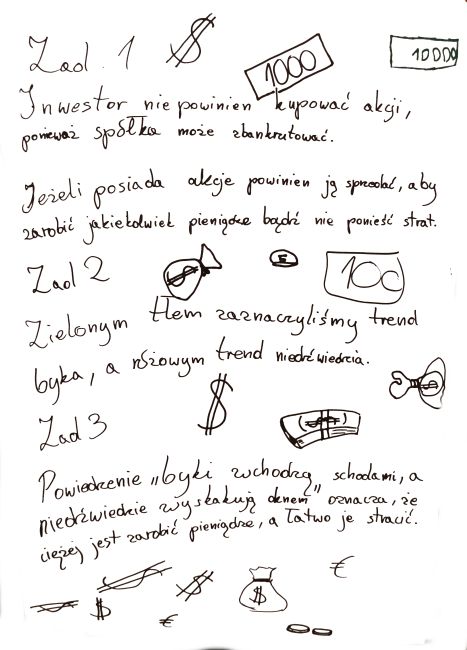 Zad. 1 $
1000
10000
Inwestor nie powinien kupować akcji,
ponieważ spółka może zbankrutować.
Jeżeli posiada akcje powinien ją sprzedać, aby
zarobić jakiekolwiek pieniądze bądź nie ponieść strat.
Zad 2 $ 5 100
Zielonym tłem zaznaczyliśmy trend
byka, a różowym trend niedźwiedzia.
$
Zad 3 $ $
Powiedzenie "byki wchodzą schodami, a
niedźwiedzie wyskakują oknem" oznacza, że
ciężej jest zarobić pieniądze, a łatwo je stracić.
$ $ $ €
$ $ €